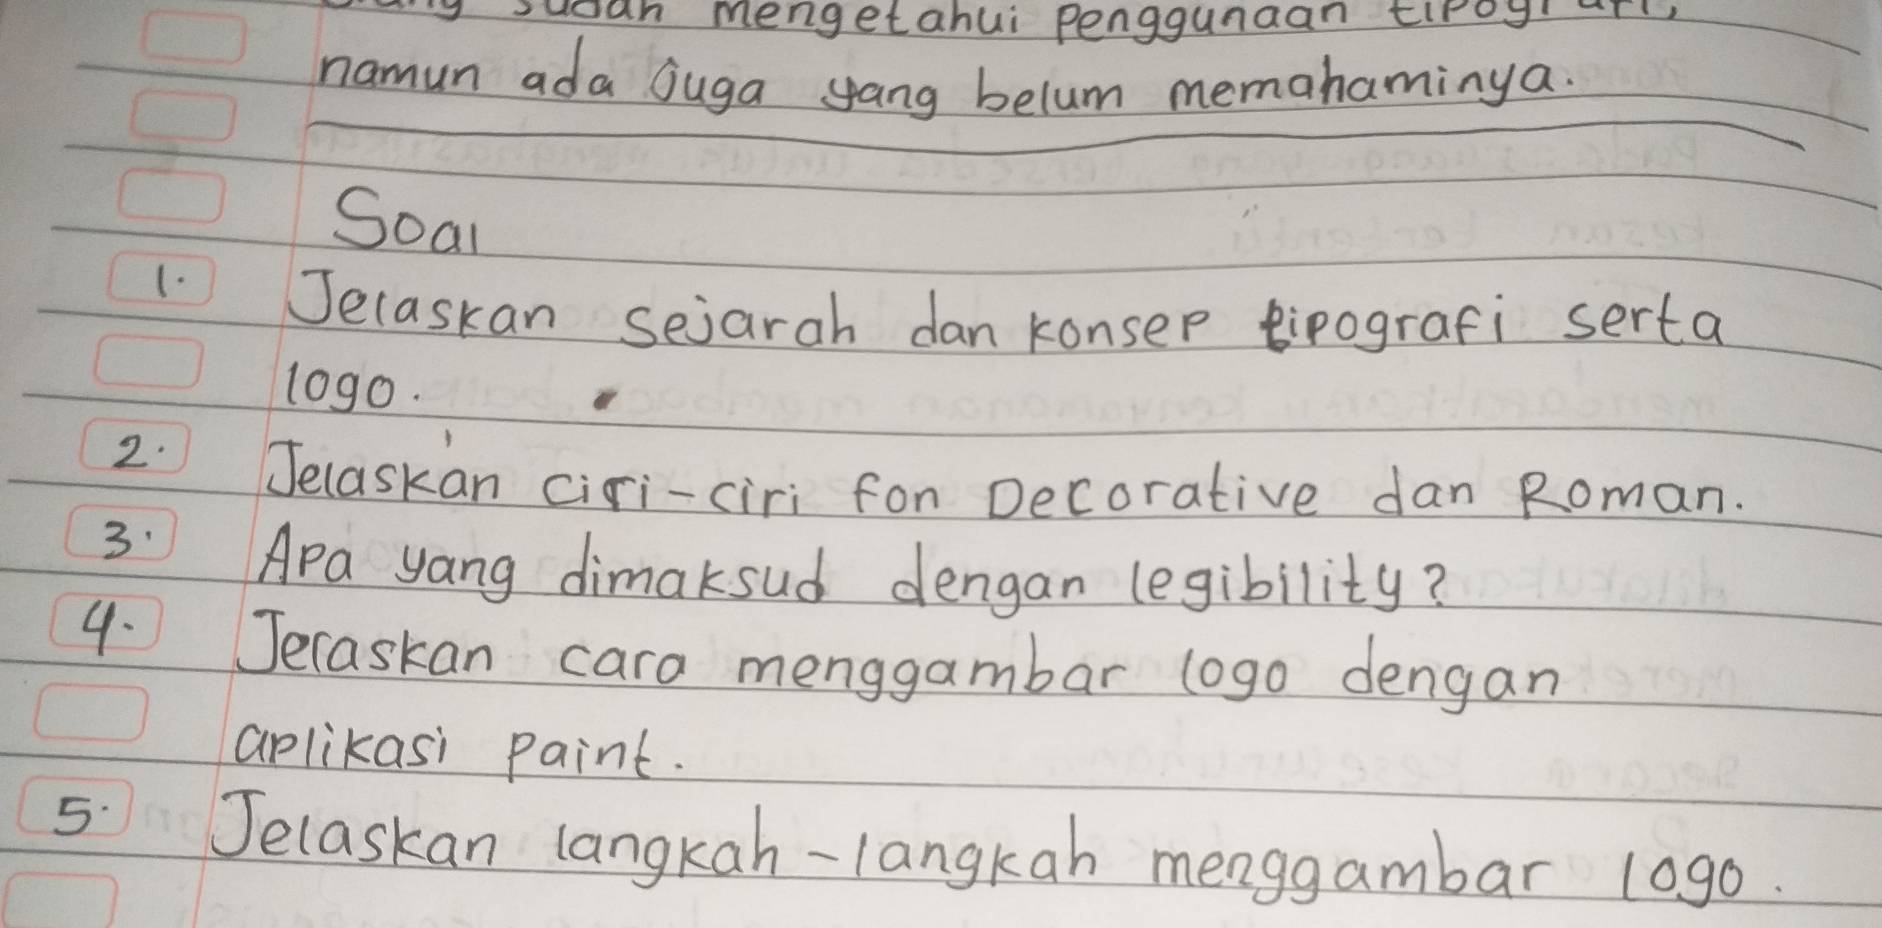 sudah mengetahui penggunaan tipografi,
namun ada juga yang belum memahaminya.
Soal
1. Jelaskan sejarah dan konsep tipografi serta
logo.
2. Jelaskan ciri-ciri fon Decorative dan Roman.
3. Apa yang dimaksud dengan legibility?
4. Jelaskan cara menggambar logo dengan
aplikasi paint.
5. Jelaskan langkah-langkah menggambar logo.